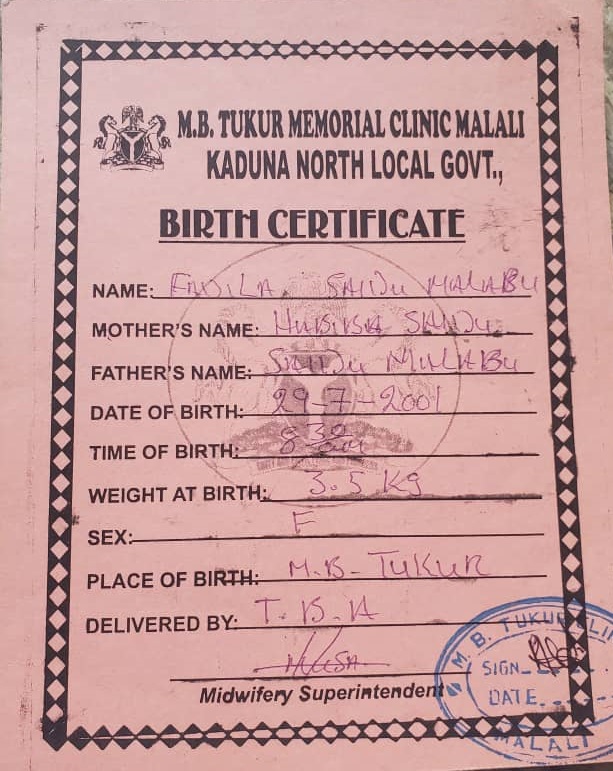 M.B. TUKUR MEMORIAL CLINIC MALALI
KADUNA NORTH LOCAL GOVT.,
BIRTH CERTIFICATE
NAME: FADILA SAIDU MALABU
MOTHER'S NAME: HABIBA SAIDU
FATHER'S NAME: SAIDU MALABU
DATE OF BIRTH: 29-7-2001
TIME OF BIRTH: 8 30
WEIGHT AT BIRTH: 3.5 Kg
SEX: F
PLACE OF BIRTH: M.B. TUKUR
DELIVERED BY: T.B.A
Midwifery Superintendent
M.B. TUKUR
SIGN
DATE
MALALI